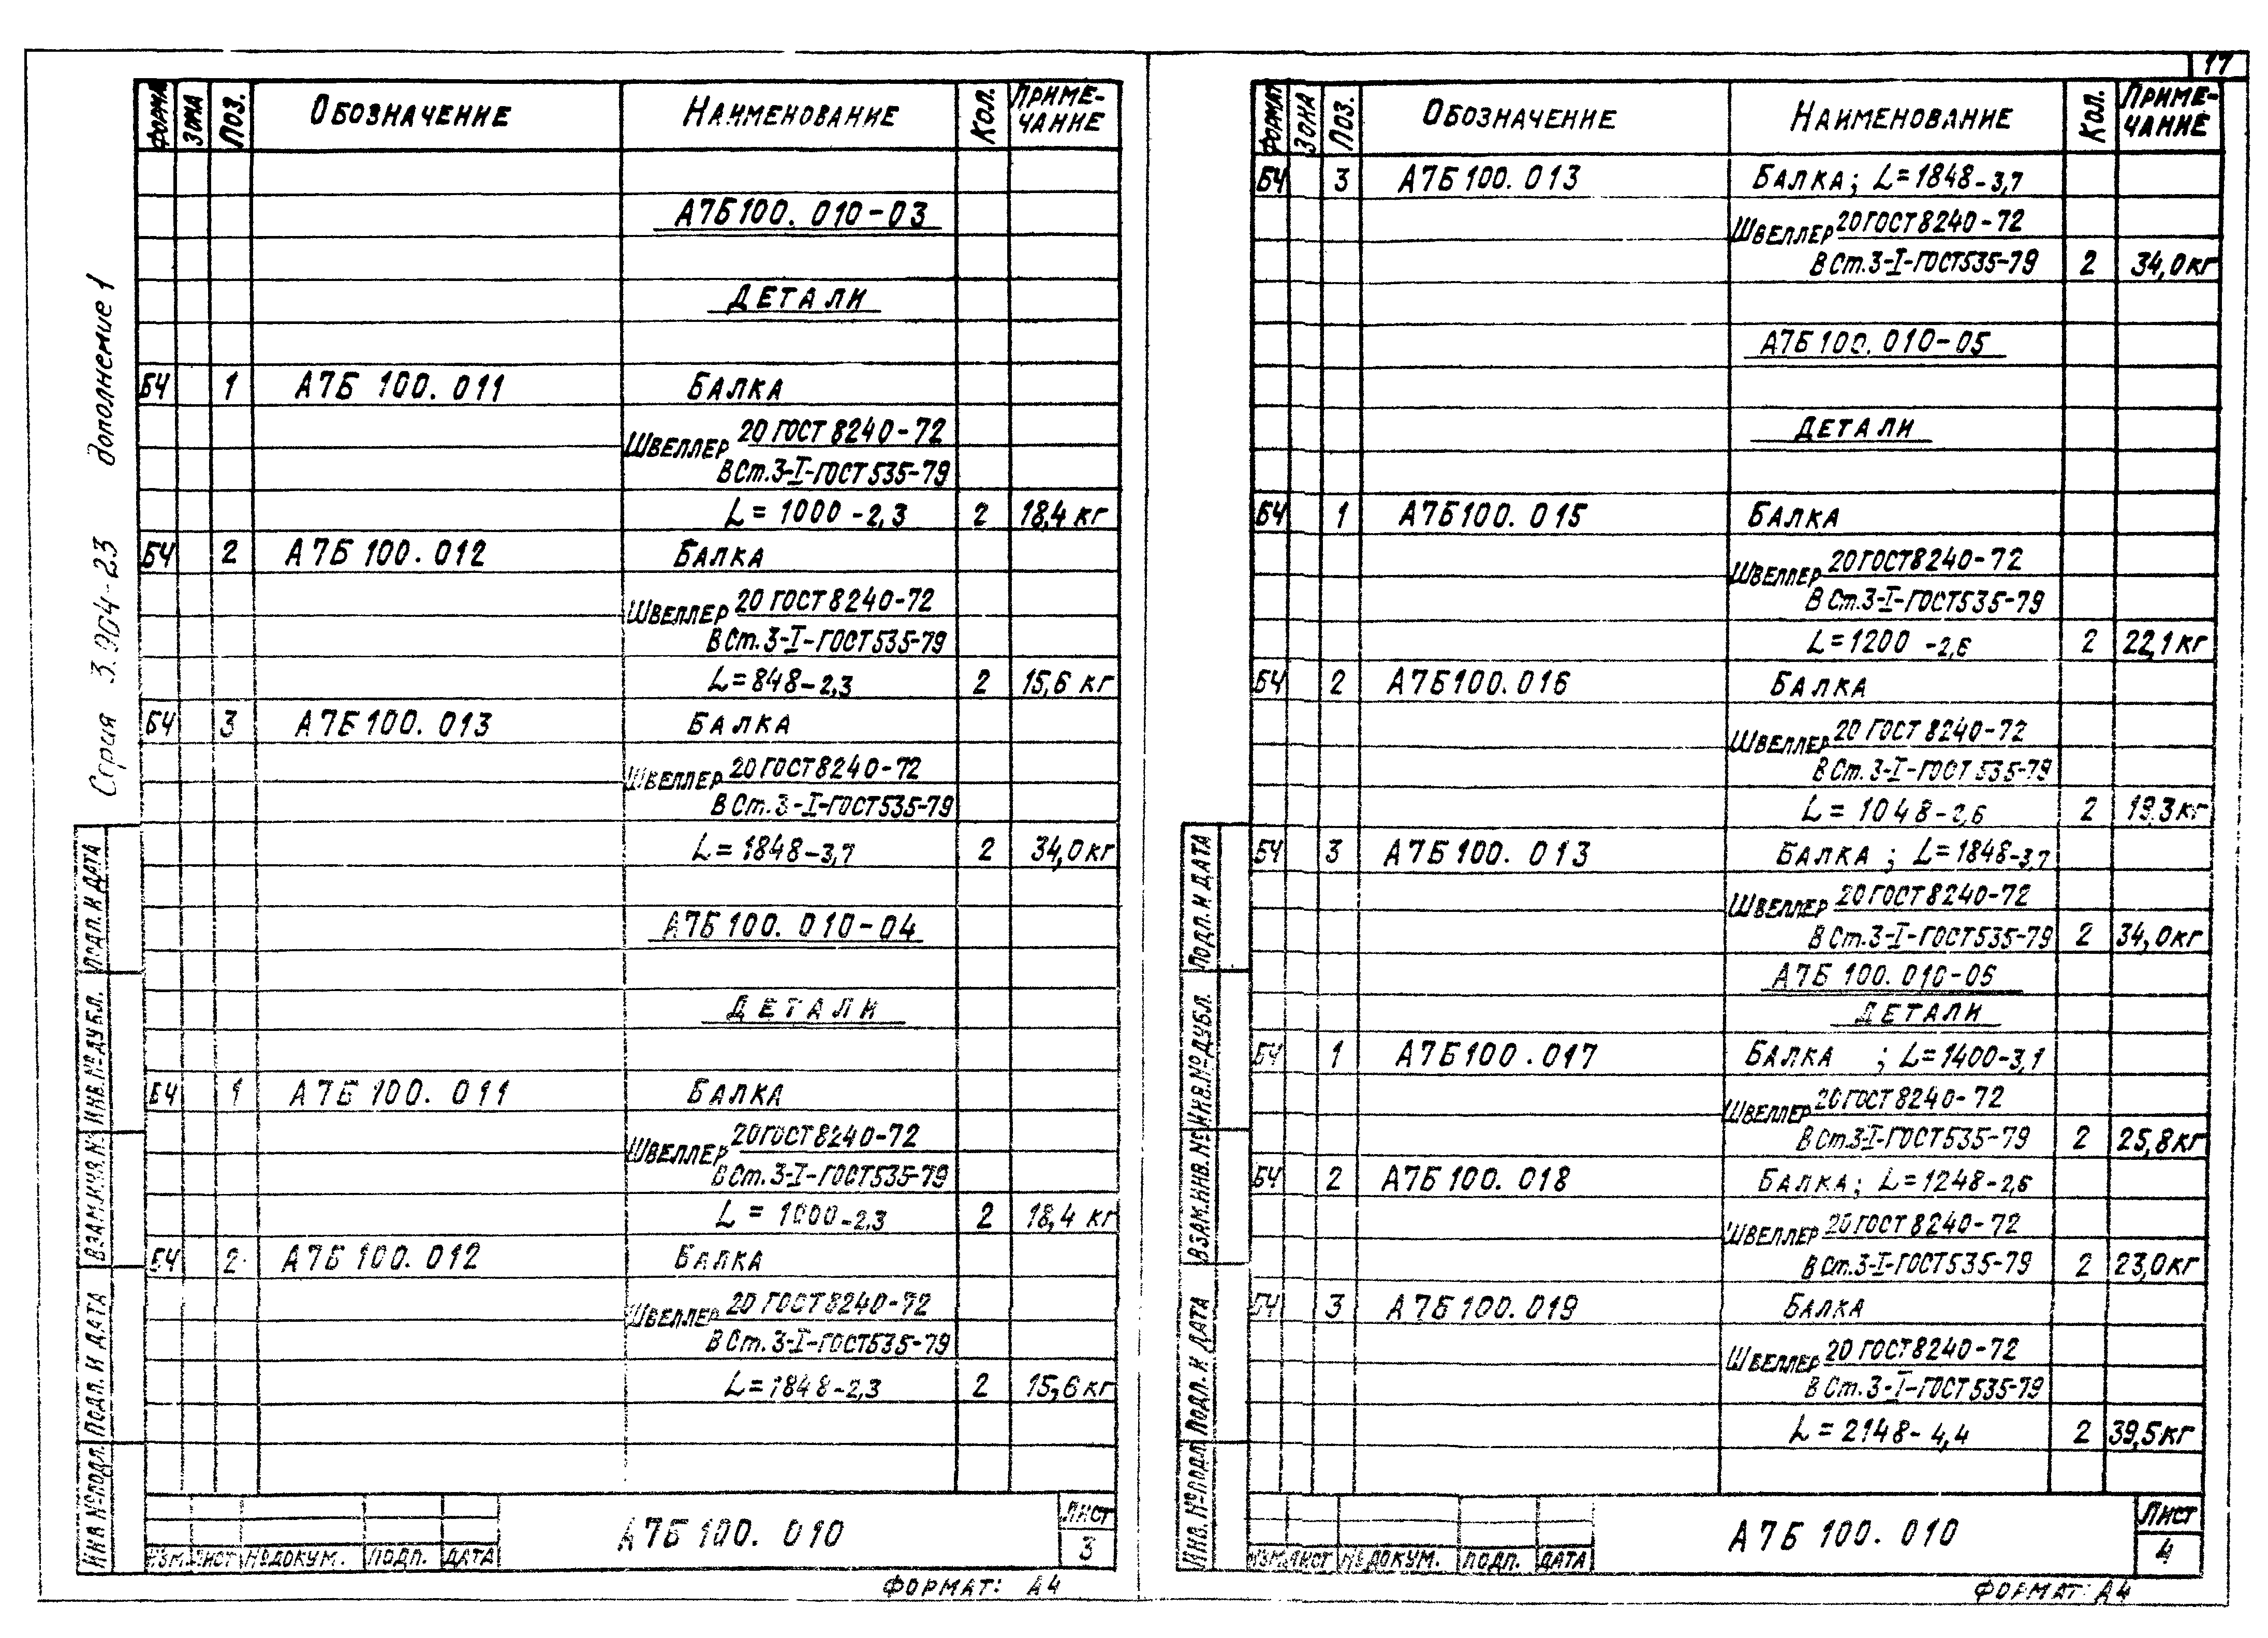 17
Серия 3.904-23 дополнение 1
ФОРМА ЗОНА ПОЗ. ОБОЗНАЧЕНИЕ НАИМЕНОВАНИЕ КОЛ. ПРИМЕ-
ЧАНИЕ
А7Б100.010-03
ДЕТАЛИ
БЧ 1 А7Б 100.011 БАЛКА
ШВЕЛЛЕР 20 ГОСТ 8240-72
ВСт.3-I-ГОСТ 535-79
L= 1000 -2,3 2 18,4 кг
БЧ 2 А7Б 100.012 БАЛКА
ШВЕЛЛЕР 20 ГОСТ 8240-72
ВСт.3-I-ГОСТ 535-79
L=848-2,3 2 15,6 кг
БЧ 3 А7Б100.013 БАЛКА
ШВЕЛЛЕР 20 ГОСТ 8240-72
ВСт.3-I-ГОСТ 535-79
L=1848-3,7 2 34,0 кг
А7Б100.010-04
ДЕТАЛИ
БЧ 1 А7Б 100.011 БАЛКА
ШВЕЛЛЕР 20 ГОСТ 8240-72
ВСт.3-I-ГОСТ 535-79
L = 1000-2,3 2 18,4 кг
БЧ 2 А7Б100.012 БАЛКА
ШВЕЛЛЕР 20 ГОСТ 8240-72
ВСт.3-I-ГОСТ 535-79
L=1848-2,3 2 15,6 кг
ИНВ.№ПОДЛ. ПОДП. И ДАТА ВЗАМ.ИНВ.№ ИНВ.№ДУБЛ. ПОДП. И ДАТА
ИЗМ. ЛИСТ №ДОКУМ. ПОДП. ДАТА
А7Б 100.010
ЛИСТ
3
ФОРМАТ: А4
ФОРМАТ ЗОНА ПОЗ. ОБОЗНАЧЕНИЕ НАИМЕНОВАНИЕ КОЛ. ПРИМЕ-
ЧАНИЕ
БЧ 3 А7Б100.013 БАЛКА; L=1848-3,7
ШВЕЛЛЕР 20 ГОСТ 8240-72
ВСт.3-I-ГОСТ 535-79 2 34,0 кг
А7Б100.010-05
ДЕТАЛИ
БЧ 1 А7Б100.015 БАЛКА
ШВЕЛЛЕР 20 ГОСТ 8240-72
ВСт.3-I-ГОСТ 535-79
L=1200 -2,6 2 22,1 кг
БЧ 2 А7Б100.016 БАЛКА
ШВЕЛЛЕР 20 ГОСТ 8240-72
ВСт.3-I-ГОСТ 535-79
L= 1048-2,6 2 19,3 кг
БЧ 3 А7Б100.013 БАЛКА; L=1848-3,7
ШВЕЛЛЕР 20 ГОСТ 8240-72
ВСт.3-I-ГОСТ 535-79 2 34,0 кг
А7Б 100.010-06
ДЕТАЛИ
БЧ 1 А7Б100.017 БАЛКА ; L=1400-3,1
ШВЕЛЛЕР 20 ГОСТ 8240-72
ВСт.3-I-ГОСТ 535-79 2 25,8 кг
БЧ 2 А7Б100.018 БАЛКА; L=1248-2,6
ШВЕЛЛЕР 20 ГОСТ 8240-72
ВСт.3-I-ГОСТ 535-79 2 23,0 кг
БЧ 3 А7Б100.019 БАЛКА
ШВЕЛЛЕР 20 ГОСТ 8240-72
ВСт.3-I-ГОСТ 535-79
L= 2148-4,4 2 39,5 кг
ИНВ.№ПОДЛ. ПОДП. И ДАТА ВЗАМ.ИНВ.№ ИНВ.№ДУБЛ. ПОДП. И ДАТА
ИЗМ. ЛИСТ №ДОКУМ. ПОДП. ДАТА
А7Б 100.010
ЛИСТ
4
ФОРМАТ: А4